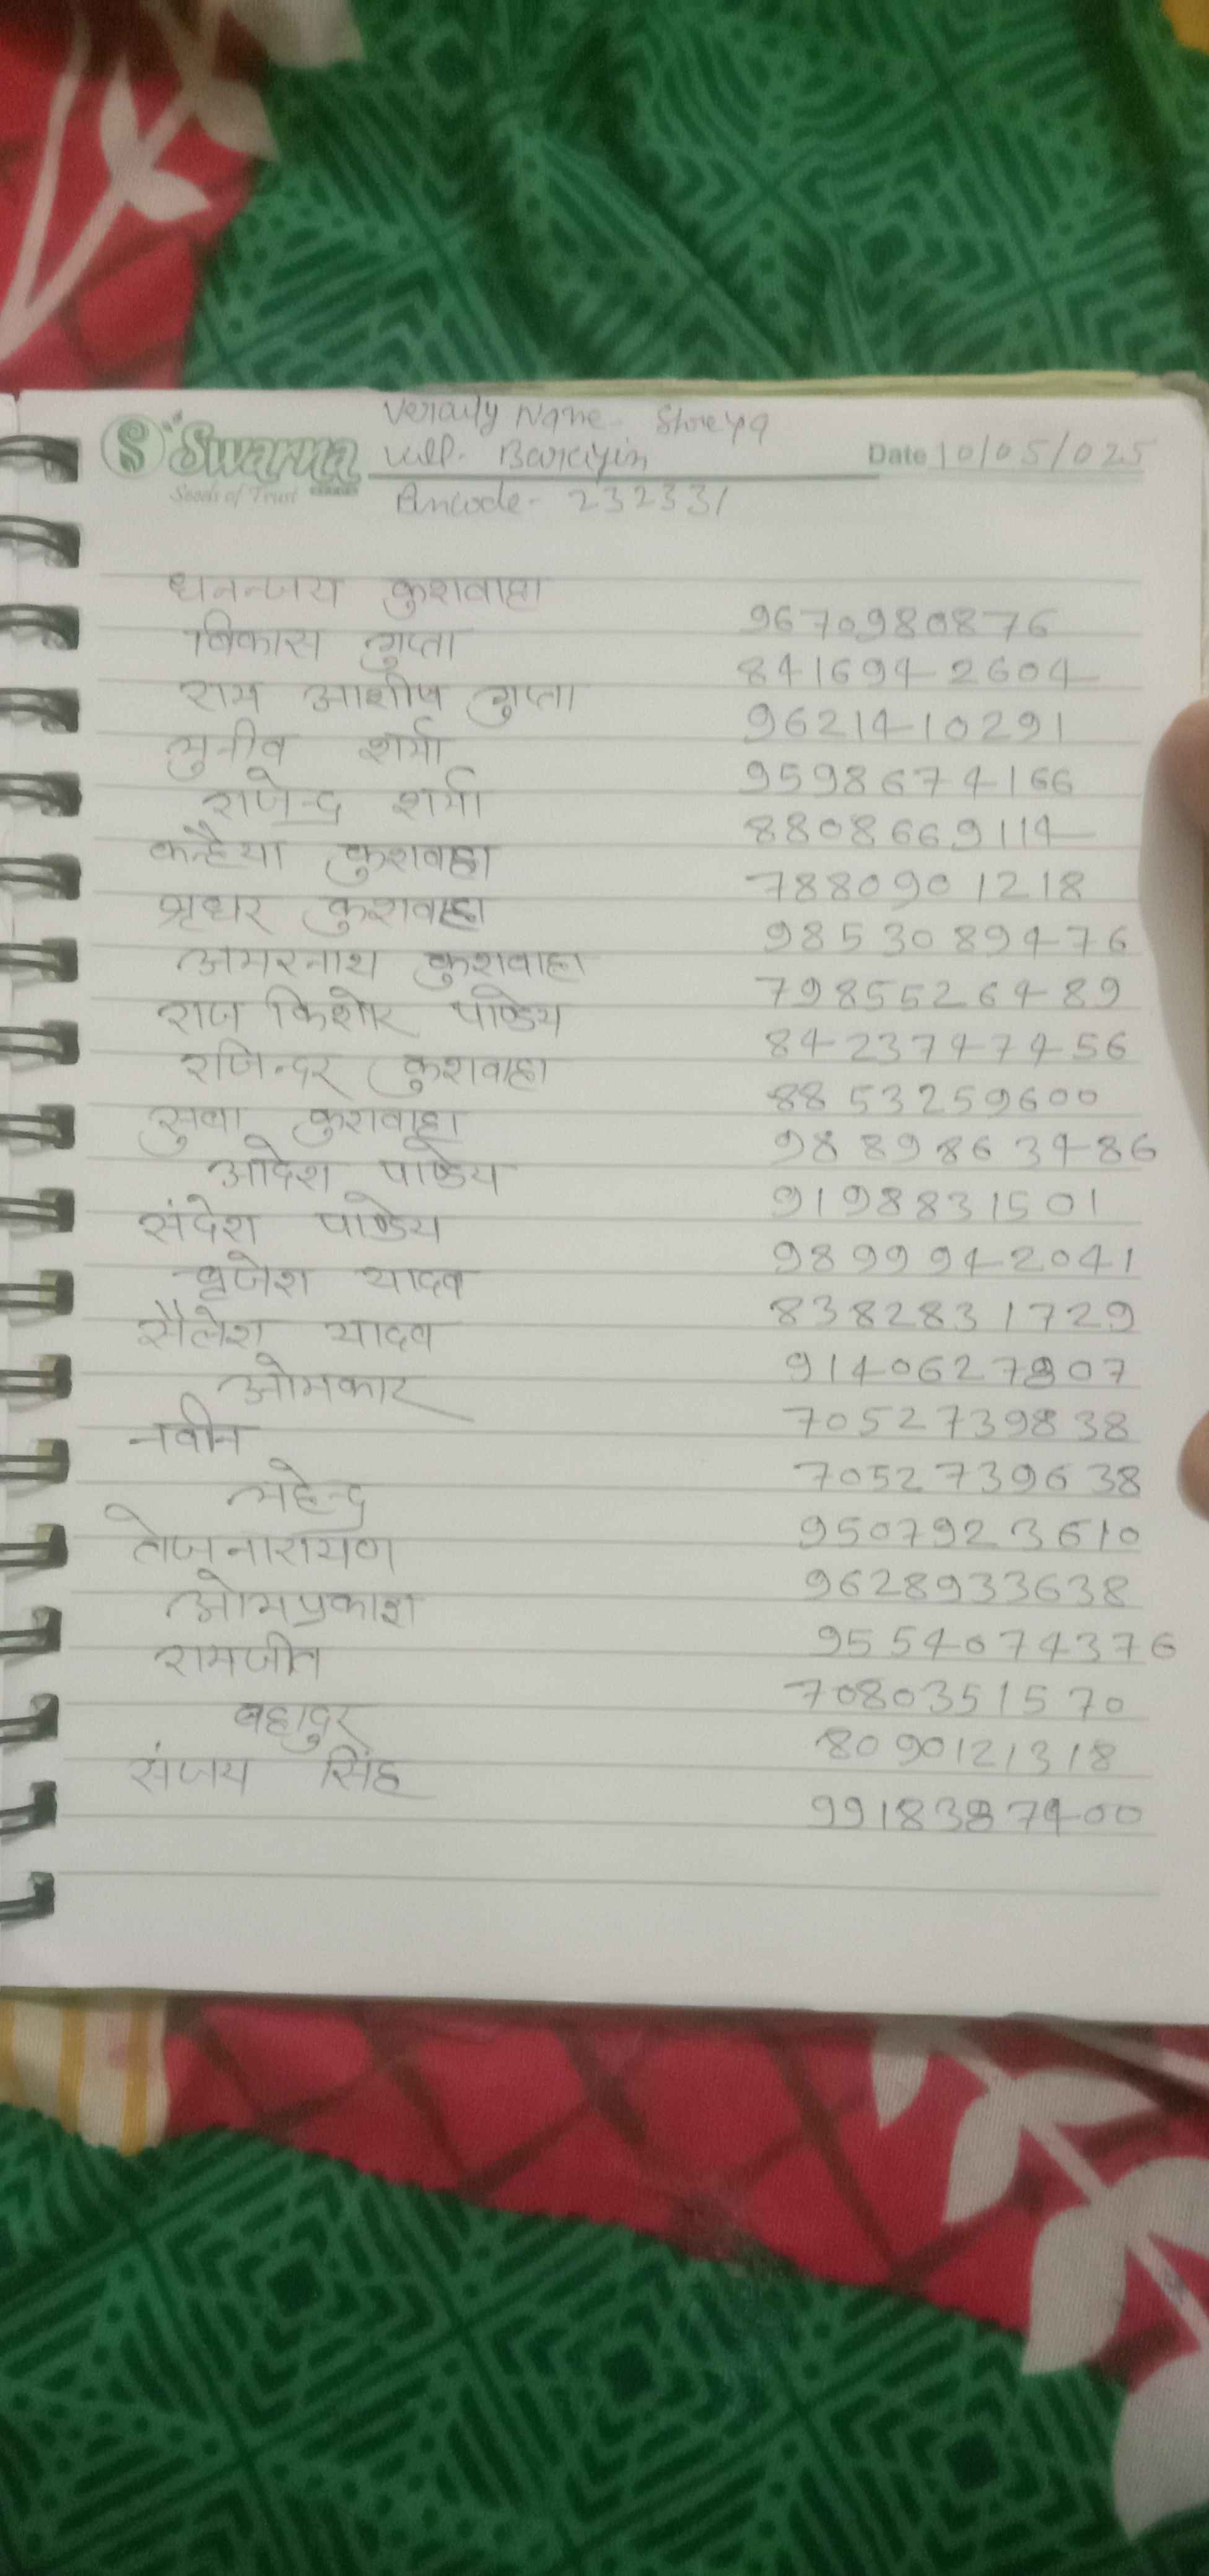 Veraity Name - Shreya
S Swarna
Seeds of Trust
Vill - Barayin
Date 10/05/025
Pincode - 232331
धनन्जय कुशवाहा 9670980876
विकास गुप्ता 8416942604
राम आशीष गुप्ता 9621410291
मुनीब शर्मा 9598674166
राजेन्द्र शर्मा 8808669114
कन्हैया कुशवाहा 7880901218
श्रृधर कुशवाहा 9853089476
अमरनाथ कुशवाहा 7985526489
राज किशोर पाण्डेय 8423747456
रजिन्दर कुशवाहा 8853259600
सुबा कुशवाहा 9889863486
आदेश पाण्डेय 9198831501
संदेश पाण्डेय 9899942041
बृजेश यादव 8382831729
सैलेश यादव 9140627807
ओमकार 7052739838
नवीन 7052739638
महेन्द्र 9507923610
तेजनारायण 9628933638
ओमप्रकाश 9554074376
रामजीत 7080351570
बहादुर 8090121318
संजय सिंह 9918387400